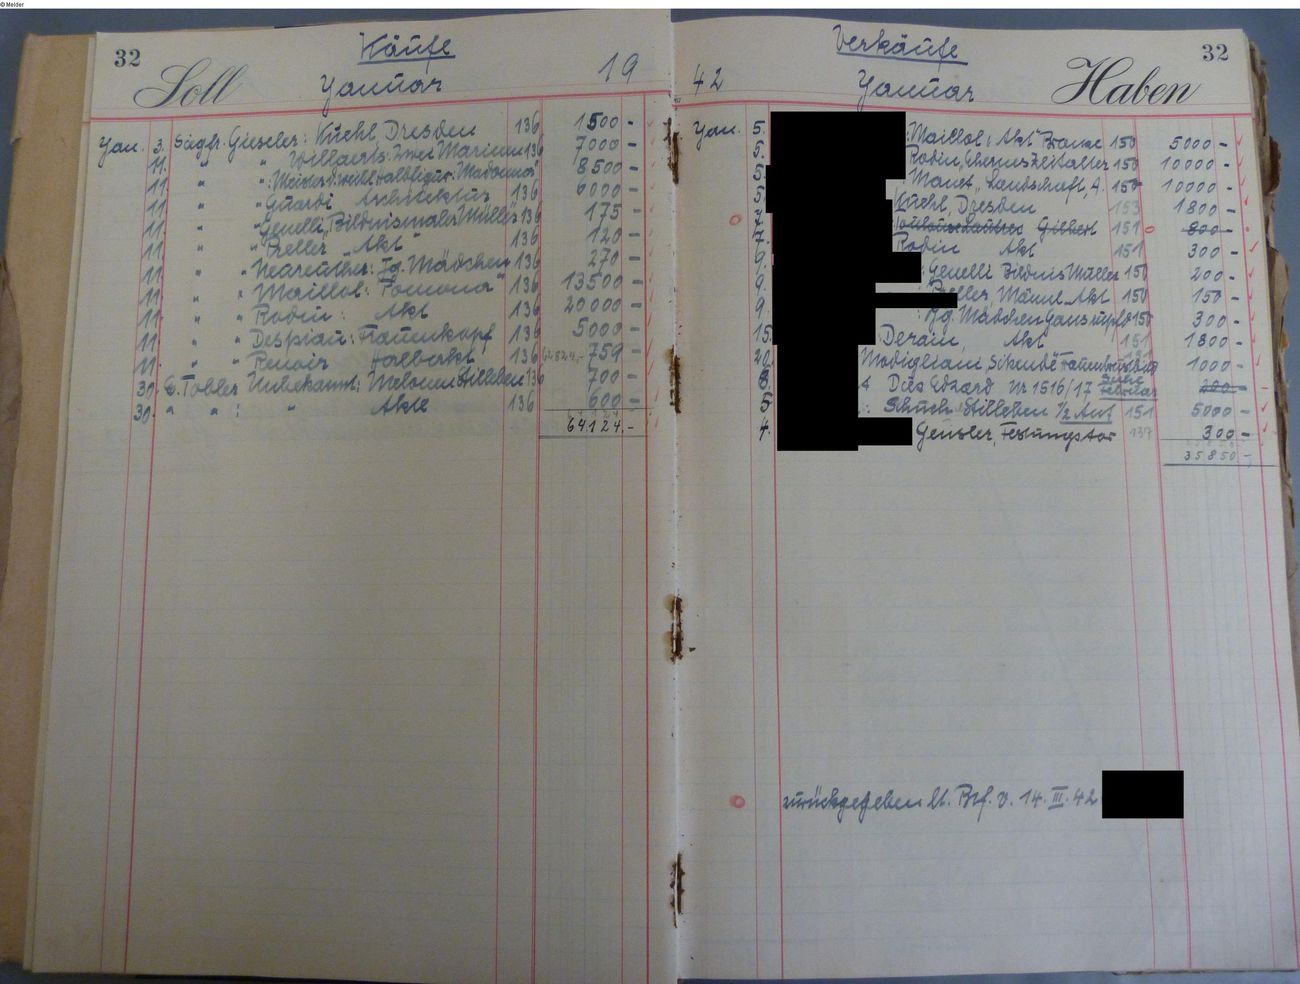 © Melder
32 Käufe
Soll Januar 19
Jan. 3. Siegfr. Gieseler: Kuehl, Dresden 136 1500 -
11. " Willaerts: Zwei Marinen 136 7000 -
11. " " Meister d. weibl. Halbfigur: Madonna" 136 8500 -
11. " " Guardi Architektur 136 6000 -
11. " " Genelli, "Bildnismaler Müller" 136 175 -
11. " " Preller Akt 136 120 -
11. " " Neureuther: Jg. Mädchen 136 270 -
11. " " Maillol: "Pomona" 136 13500 -
11. " " Rodin: Akt 136 20000 -
11. " " Despiau: Frauenkopf 136 5000 -
11. " " Renoir Halbakt 136 62824,- 759 -
30. E. Tobler Unbekannt: Melonen Stilleben 136 700 -
30. " " : " Akte 136 600 -
64124,-
Verkäufe 32
42 Januar Haben
Jan. 5. : Maillol, Akt Bronze 150 5000 -
5. Rodin, "Ehernes Zeitalter 150 10000 -
5. Manet, Landschaft, A. 150 10000 -
5. Kuehl, Dresden 153 1800 -
7. Toulouse Lautrec Gilbert 151 800 -
7. Rodin Akt 151 300 -
9. : Genelli Bildnis Müller 150 200 -
9. Preller, Männl. Akt 150 150 -
9. : Jg. Mädchen Gans rupfd 150 300 -
15. Derain, Akt 151 1800 -
20. Modigliani, Sitzende 1000 -
8. Edzard Nr 1516/17 siehe Februar 200 -
5. : Schuch Stilleben 1/2 Ant 151 5000 -
4. Gensler, Festungstor 137 300 -
35850,-
zurückgegeben lt. Brf. v. 14. III. 42